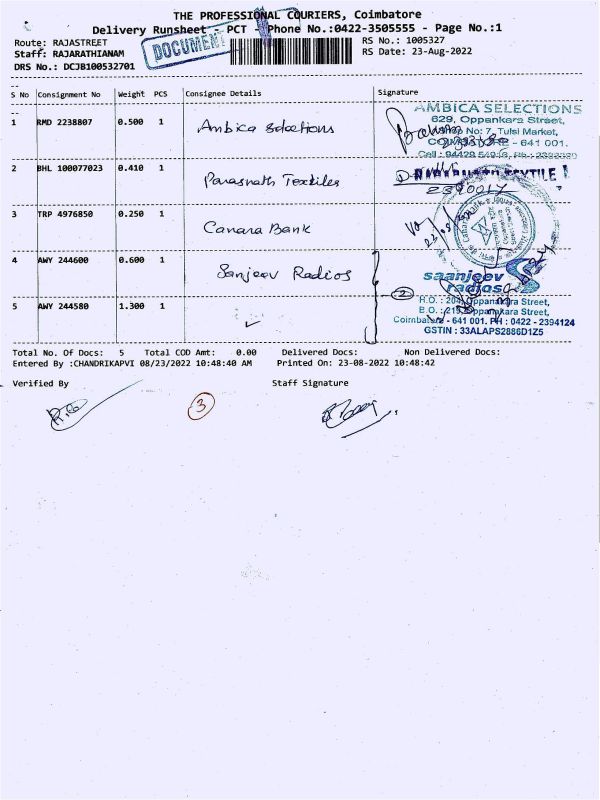 THE PROFESSIONAL COURIERS, Coimbatore
Delivery Runsheet - PCT - Phone No.:0422-3505555 - Page No.:1
Route: RAJASTREET
RS No.: 1005327
Staff: RAJARATHIANAM
DOCUMENT
RS Date: 23-Aug-2022
DRS No.: DCJB100532701
S No Consignment No Weight PCS Consignee Details Signature
1 RMD 2238807 0.500 1 Ambica Selections
AMBICA SELECTIONS
629, Oppankara Street,
No: 7, Tulsi Market,
COIMBATORE - 641 001.
2 BHL 100077023 0.410 1 Parasnath Textiles
3 TRP 4976850 0.250 1 Canara Bank
4 AWY 244600 0.600 1 Sanjeev Radios
saanjeev
radios
5 AWY 244580 1.300 1 ✓
2
H.O. : 204, Oppanakara Street,
B.O. : 215, Oppanakara Street,
Coimbatore - 641 001. PH : 0422 - 2394124
GSTIN : 33ALAPS2886D1Z5
Total No. Of Docs: 5 Total COD Amt: 0.00 Delivered Docs: Non Delivered Docs:
Entered By :CHANDRIKAPVI 08/23/2022 10:48:40 AM Printed On: 23-08-2022 10:48:42
Verified By Staff Signature
3